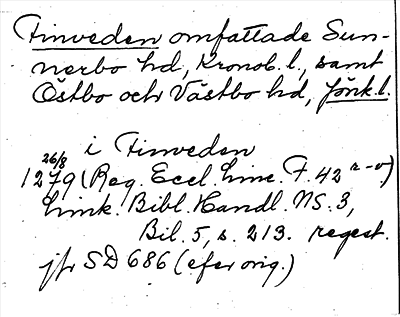 Finveden omfattade Sun-
nerbo hd, Kronob. l., samt
Östbo och Västbo hd, Jönk. l.
i Finveden
26/8
1279 (Reg. Eccl. Linc. F. 42 r-v)
Link. Bibl. Handl. NS. 3,
Bil. 5, s. 213. regest.
jfr SD 686 (efer orig.)